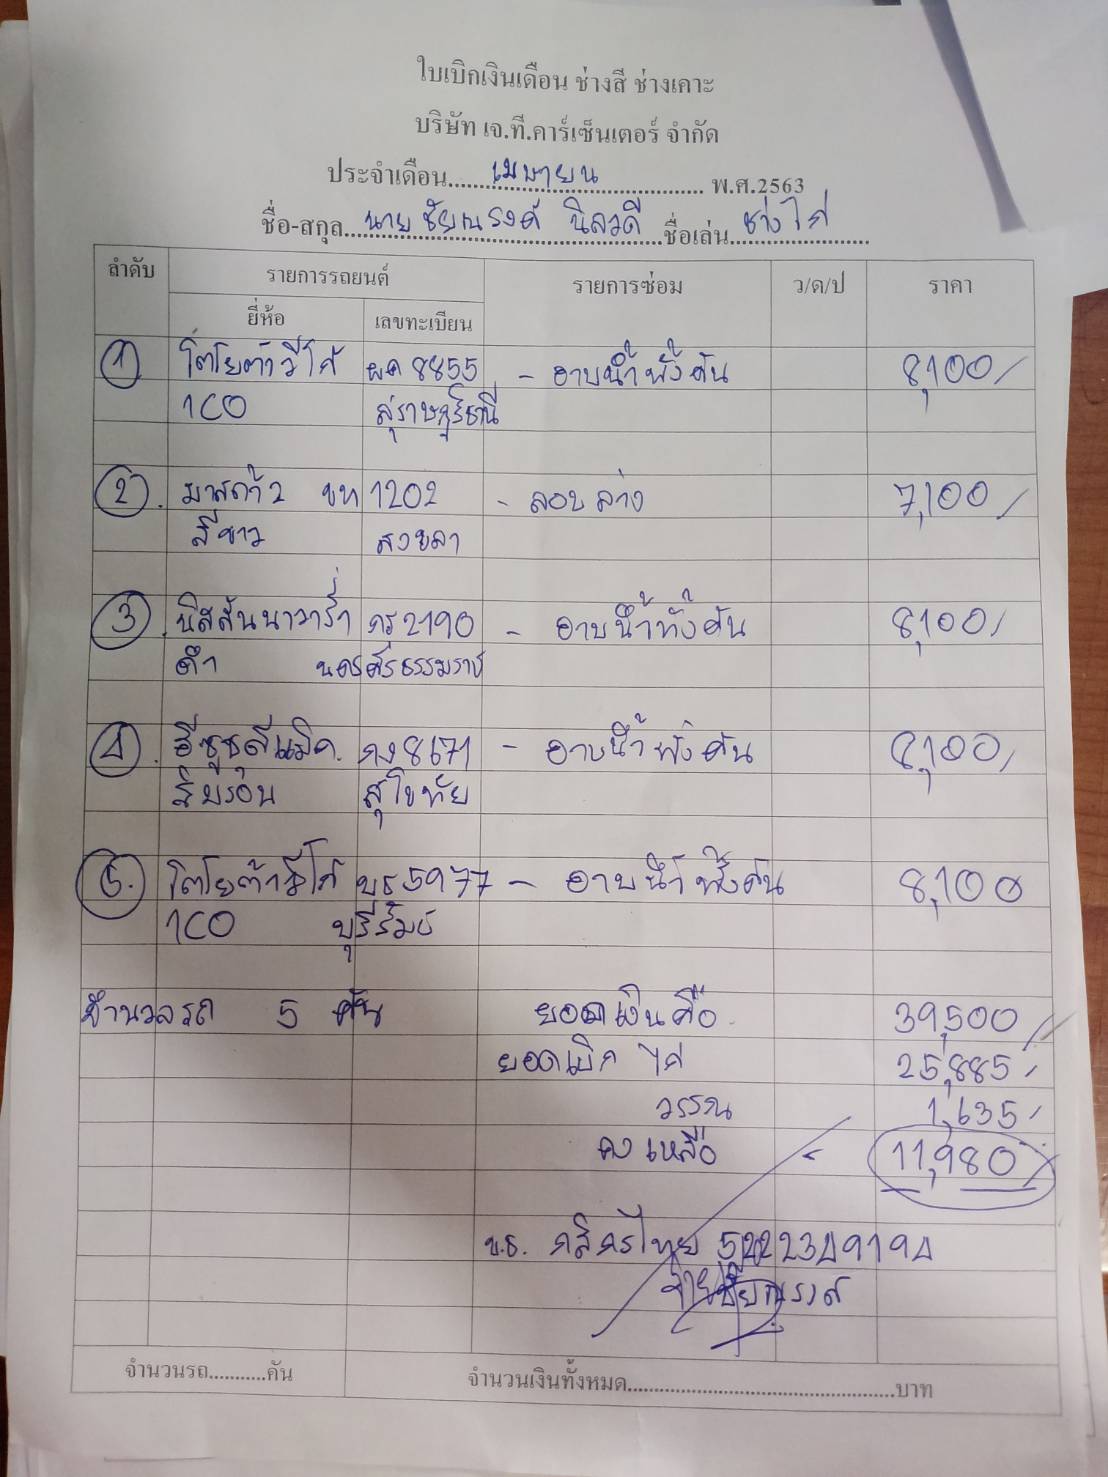 ใบเบิกเงินเดือน ช่างสี ช่างเคาะ
บริษัท เจ.ที.คาร์เซ็นเตอร์ จำกัด
ประจำเดือน.....เมษายน.....พ.ศ.2563
ชื่อ-สกุล...นาย ชัยณรงค์ นิลวดี...ชื่อเล่น...ช่างไก่...
ลำดับ รายการรถยนต์ รายการซ่อม ว/ด/ป ราคา
ยี่ห้อ เลขทะเบียน
1 โตโยต้าวีโก้ ผค 8855 - อาบน้ำทั้งคัน 8,100/
1C0 สุราษฎร์ธานี
2. มาสด้า 2 ขห 1202 - ลอบล่าง 7,100/
สีขาว สงขลา
3. นิสสันนาวาร่า กรุ 2190 - อาบน้ำทั้งคัน 8,100/
ดำ นครศรีธรรมราช
4. อีซูซุดีแม็ค. กง 8671 - อาบน้ำทั้งคัน 8,100/
สีบรอน สุโขทัย
5. โตโยต้าวีโก้ บธ 5977 - อาบน้ำทั้งคัน 8,100
1C0 บุรีรัมย์
จำนวลรถ 5 คัน ยอดเงินคือ 39,500/
ยอดเบิก ไก่ 25,885/
วรรณ 1,635/
คงเหลือ 11,980/
บ.ช. กสิกรไทย 5222349194
ชัยณรงค์
จำนวนรถ...........คัน จำนวนเงินทั้งหมด.......................................บาท